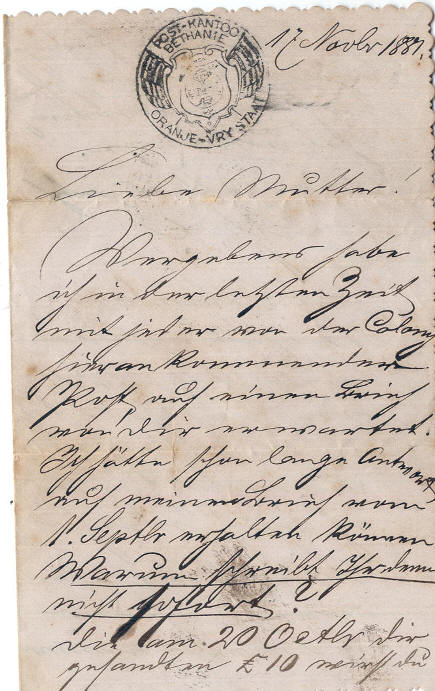 POST-KANTOO
BETHANIE
ORANJE-VRY STAAT
17 Novbr
Liebe Mutter!
Vergebens habe
ich in der letzten Zeit
mit jeder von der Colony
hier ankommenden
Post auf einen Brief
von dir erwartet.
Ich hätte schon lange Antwort
auf meinen Brief vom
1. Septbr erhalten können
Warum schreibt Ihr denn
nicht sofort?
Die am 20 Octbr dir
gesandten £10 wirst du